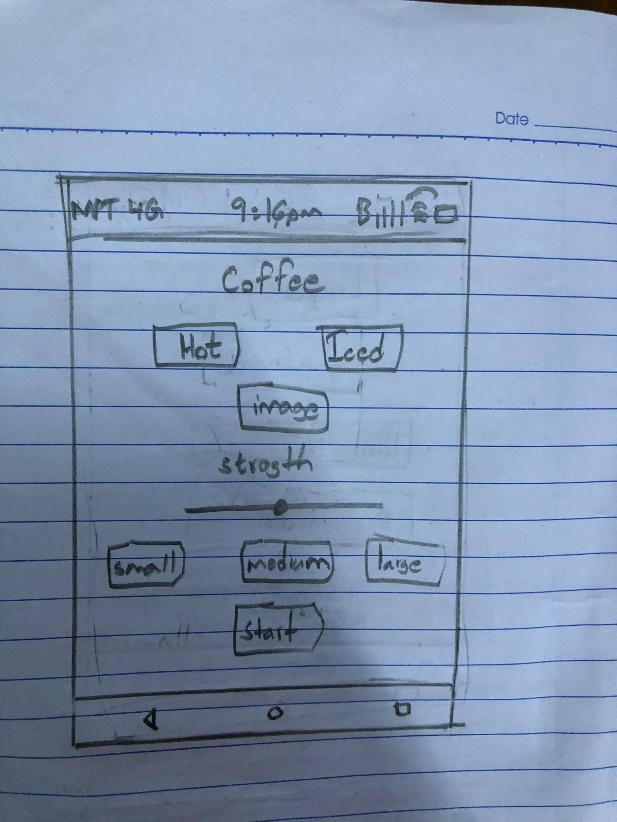 Date
MPT 4G 9:16pm B
Coffee
Hot Iced
image
strogth
small medium large
start